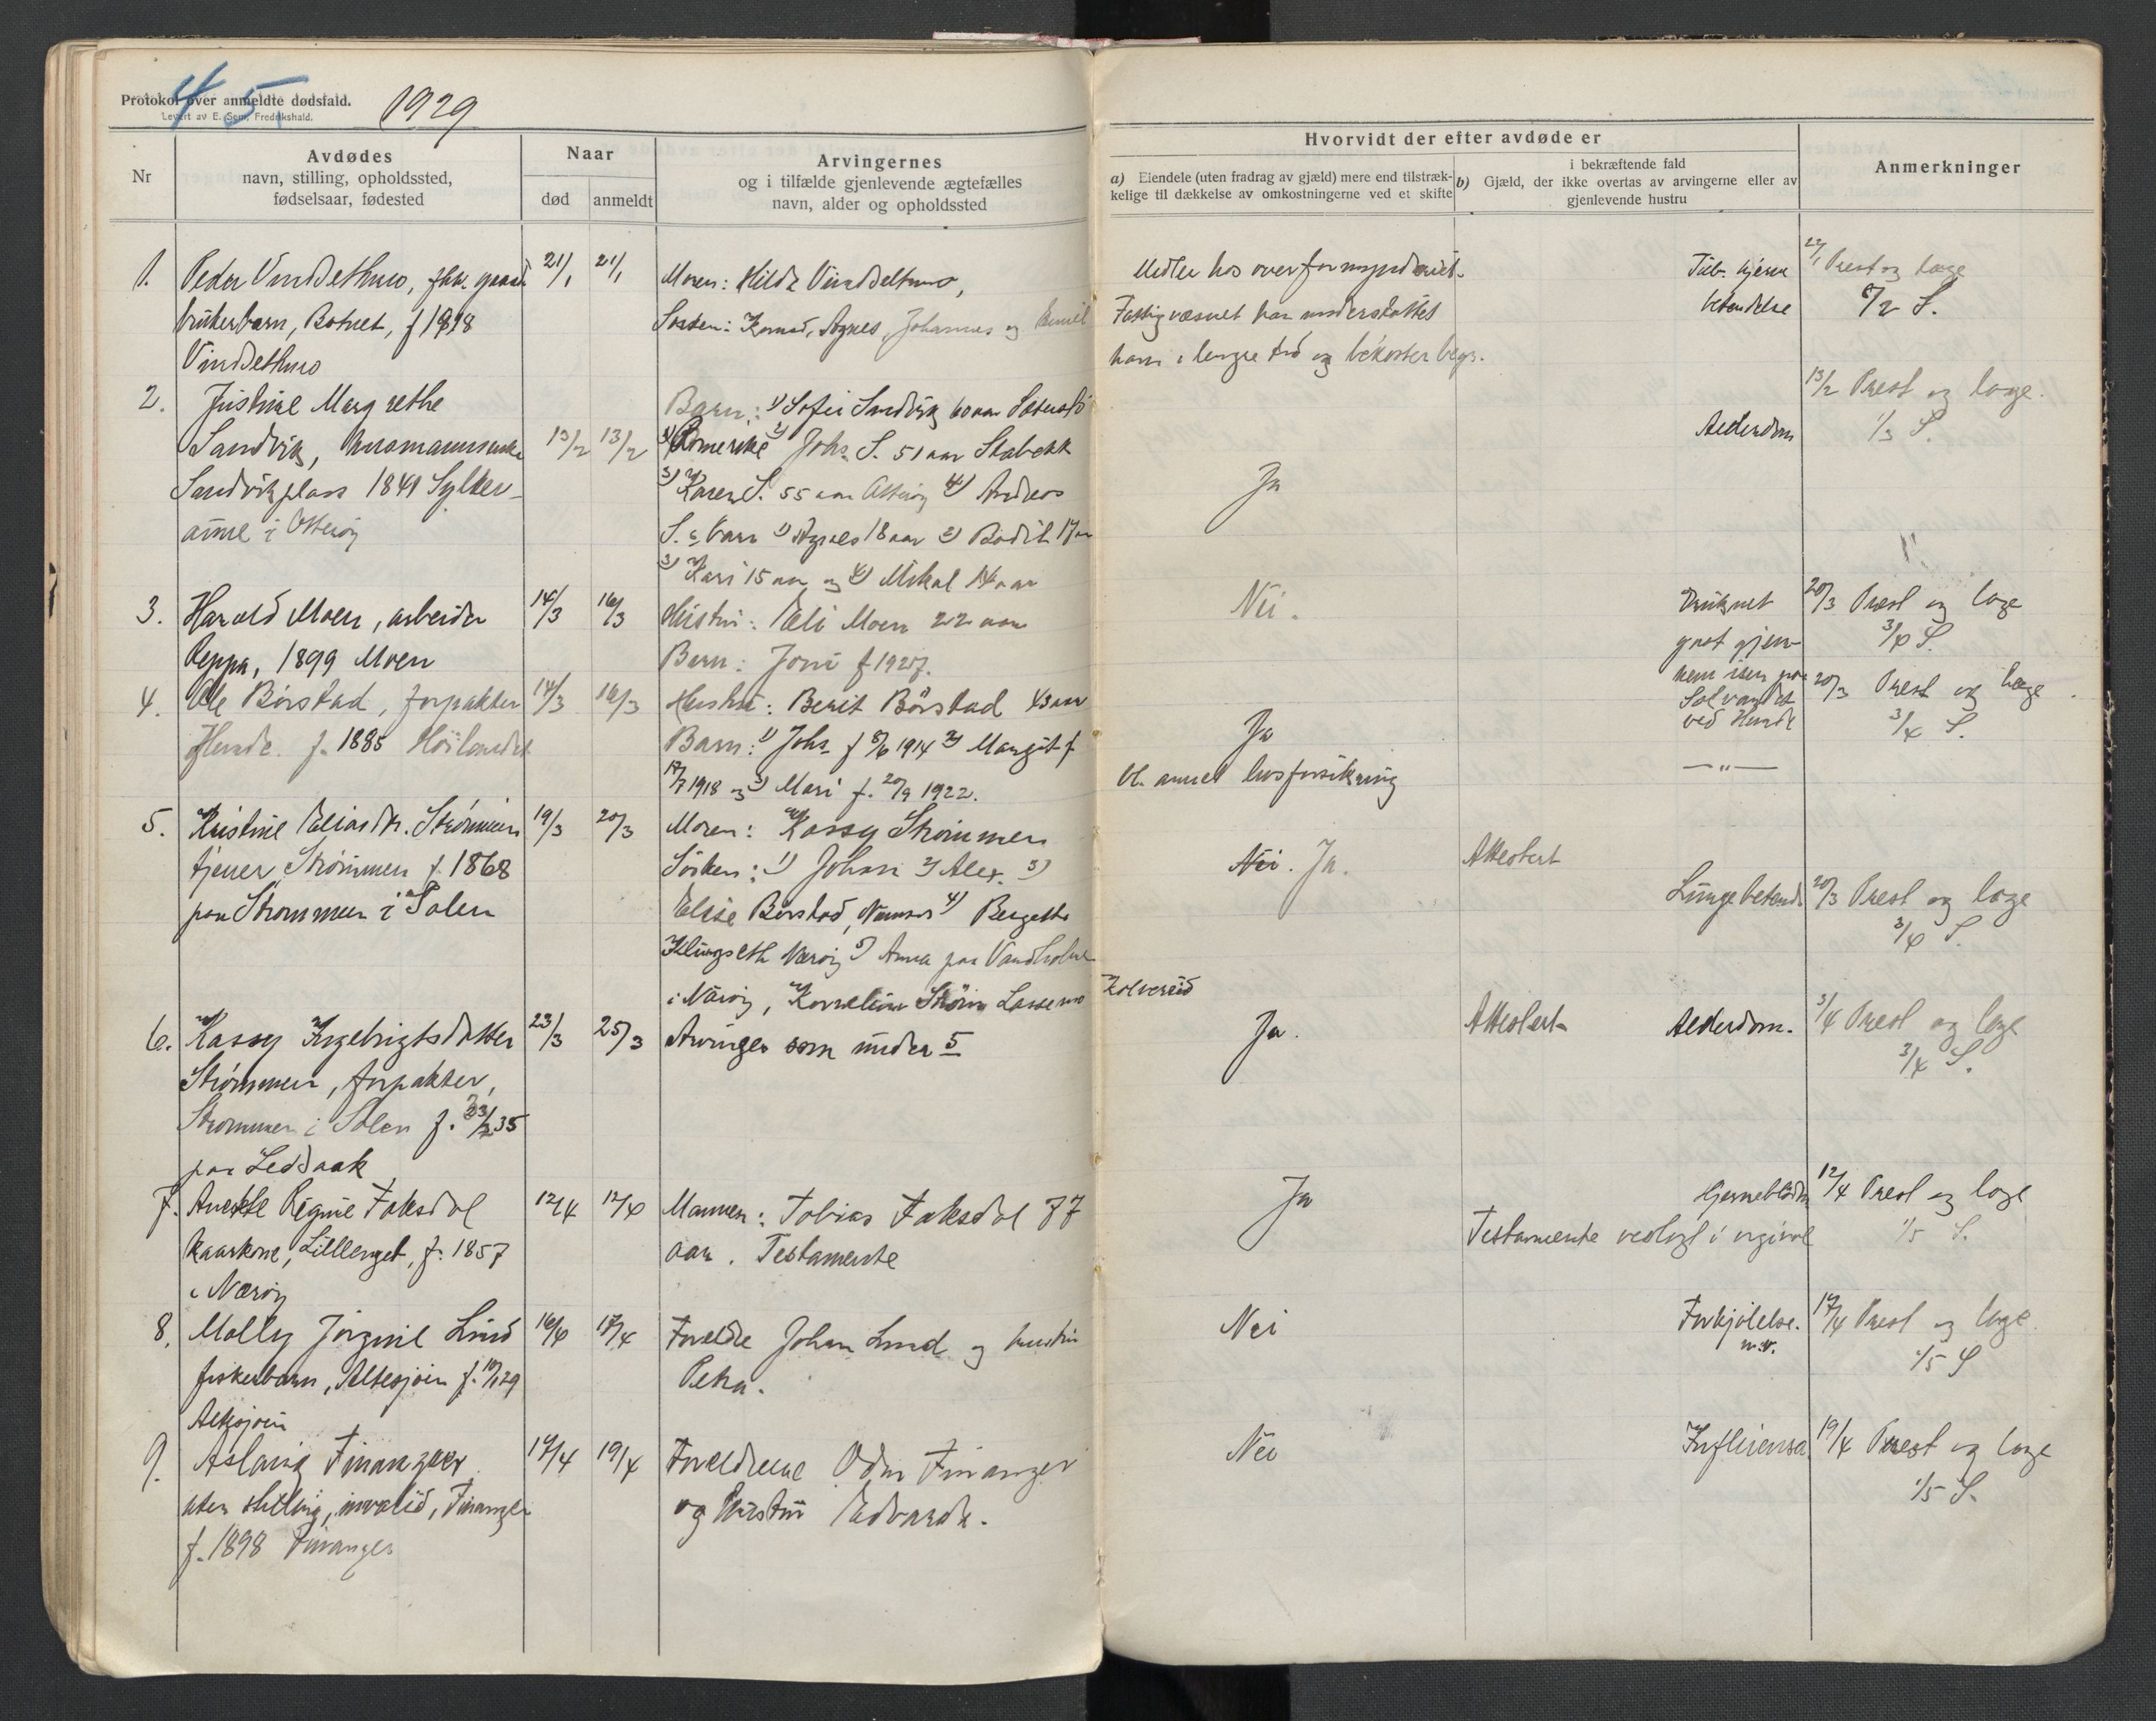 45
Protokol over anmeldte dødsfald.
Levert av E. Sem, Fredrikshald.
1929
Nr
Avdødes
navn, stilling, opholdssted,
fødselsaar, fødested
Naar
død
anmeldt
Arvingernes
og i tilfælde gjenlevende ægtefælles
navn, alder og opholdssted
Hvorvidt der efter avdøde er
a) Eiendele (uten fradrag av gjæld) mere end tilstræk-
kelige til dækkelse av omkostningerne ved et skifte
i bekræftende fald
b) Gjæld, der ikke overtas av arvingerne eller av
gjenlevende hustru
Anmerkninger
1. Peder 21/1 21/1 Moren: Hilda Midler hos Tub. hjerne 22/1 Prest og læge
brukerbarn, Botnet, f 1918 Søsken: Konrad, Agnes, Johannes og Emil Fattigvæsnet har understøttet betendelse 8/2 S.
ham i lengre tid og bekoster begr.
2. Justine Margrethe Barn: 1) Sofie Sandvik 60 aar 13/2 Prest og læge.
Sandvik, 13/2 13/2 Romerike 2) Johs. S. 51 aar Stabekk Alderdom 1/3 S.
Sandvikplass 1841 Sylter- 3) Karen S. 55 aar Otterøy 4) Andreas Ja
aune i Otterøy S. s barn 1) Agnes 18 aar 2) Bodil 17 aar
3) Kari 15 aar og 4) Mikal 14 aar
3. Harald Moen, arbeider 14/3 16/3 Hustru: Eli Moen 22 aar Nei. Druknet 20/3 Prest og læge
Reppa, 1899 Moen Barn: Joni f 1927. gaat gjen- 3/4 S.
4. Ole Børstad, forpakter 14/3 16/3 Hustru: Berit Börstad 43 aar nem isen paa 20/3 Prest og læge.
Hunde. f. 1885 Høilandet Barn: 1) Johs. f 8/6 1914 2) Margit f. Ja Salvandet ved Hunde 3/4 S.
17/7 1918 og 3) Mari f. 20/9 1922. bl. annet livsforsikring —"—
5. Kristine Eliasdtr. Strömmen 19/3 20/3 Moren: Kassy Strömmen
tjener Strömmen f. 1868 Søsken: 1) Johan 2) Alex. 3) Nei. Ja. Attestert
paa Strømmen i Salen Elise Børstad, Namsos 4) Bergette Lungebetend. 20/3 Prest og læge
Klingseth Nærøy 5) Anna paa Vandholm 3/4 S.
i Närøy, Kornelius Ström Lassemo Kolvereid
6. Kassy Ingebrigtsdatter 23/3 25/3 Arvinger som under 5 Ja. Attestert Alderdom. 3/4 Prest og læge
Strömmen, forpakter, 3/4 S.
Strømmen i Salen f. 23/2 35
paa Leddaak
7. Anette Regine Faksdal 12/4 12/4 Mannen: Tobias Faksdal 77 Ja Hjerneblødn. 12/4 Prest og læge
kaarkone, Lillenget, f. 1857 aar. Testamente Testamente vedlagt i orginal 1/5 S.
i Nærøy
8. Molly Jörgine Lund 16/4 17/4 Foreldre Johan Lund og hustru Nei Forkjölelse. 17/4 Prest og læge
fiskerbarn, Altesjøen f. 10/1 29 Petra. m.v. 1/5 S
Altesjøen
9. Aslaug Finanger 17/4 19/4 Foreldrene Odin Finanger Nei Influensa 19/4 Prest og læge
uten stilling, invalid, Finanger og Hustru Edvarda. 1/5 S.
f. 1898 Finanger